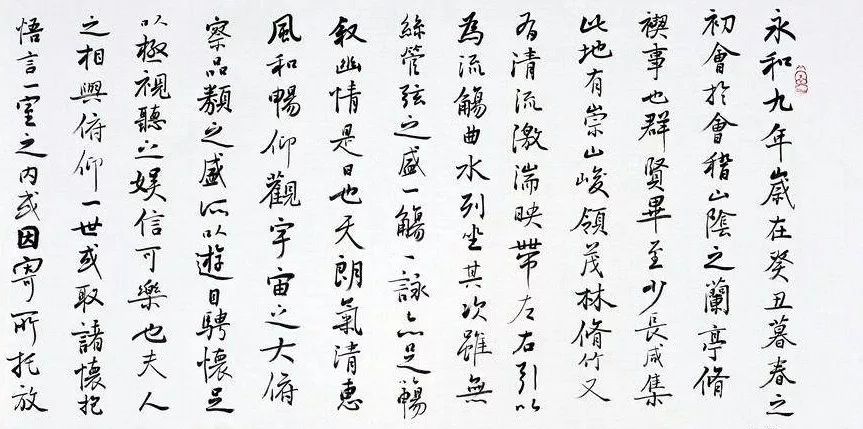 永和九年歲在癸丑暮春之
初會於會稽山陰之蘭亭脩
禊事也群賢畢至少長咸集
此地有崇山峻領茂林脩竹又
有清流激湍映帶左右引以
為流觴曲水列坐其次雖無
絲管弦之盛一觴一詠亦足暢
敘幽情是日也天朗氣清惠
風和暢仰觀宇宙之大俯
察品類之盛所以遊目騁懷足
以極視聽之娛信可樂也夫人
之相與俯仰一世或取諸懷抱
悟言一室之內或因寄所托放